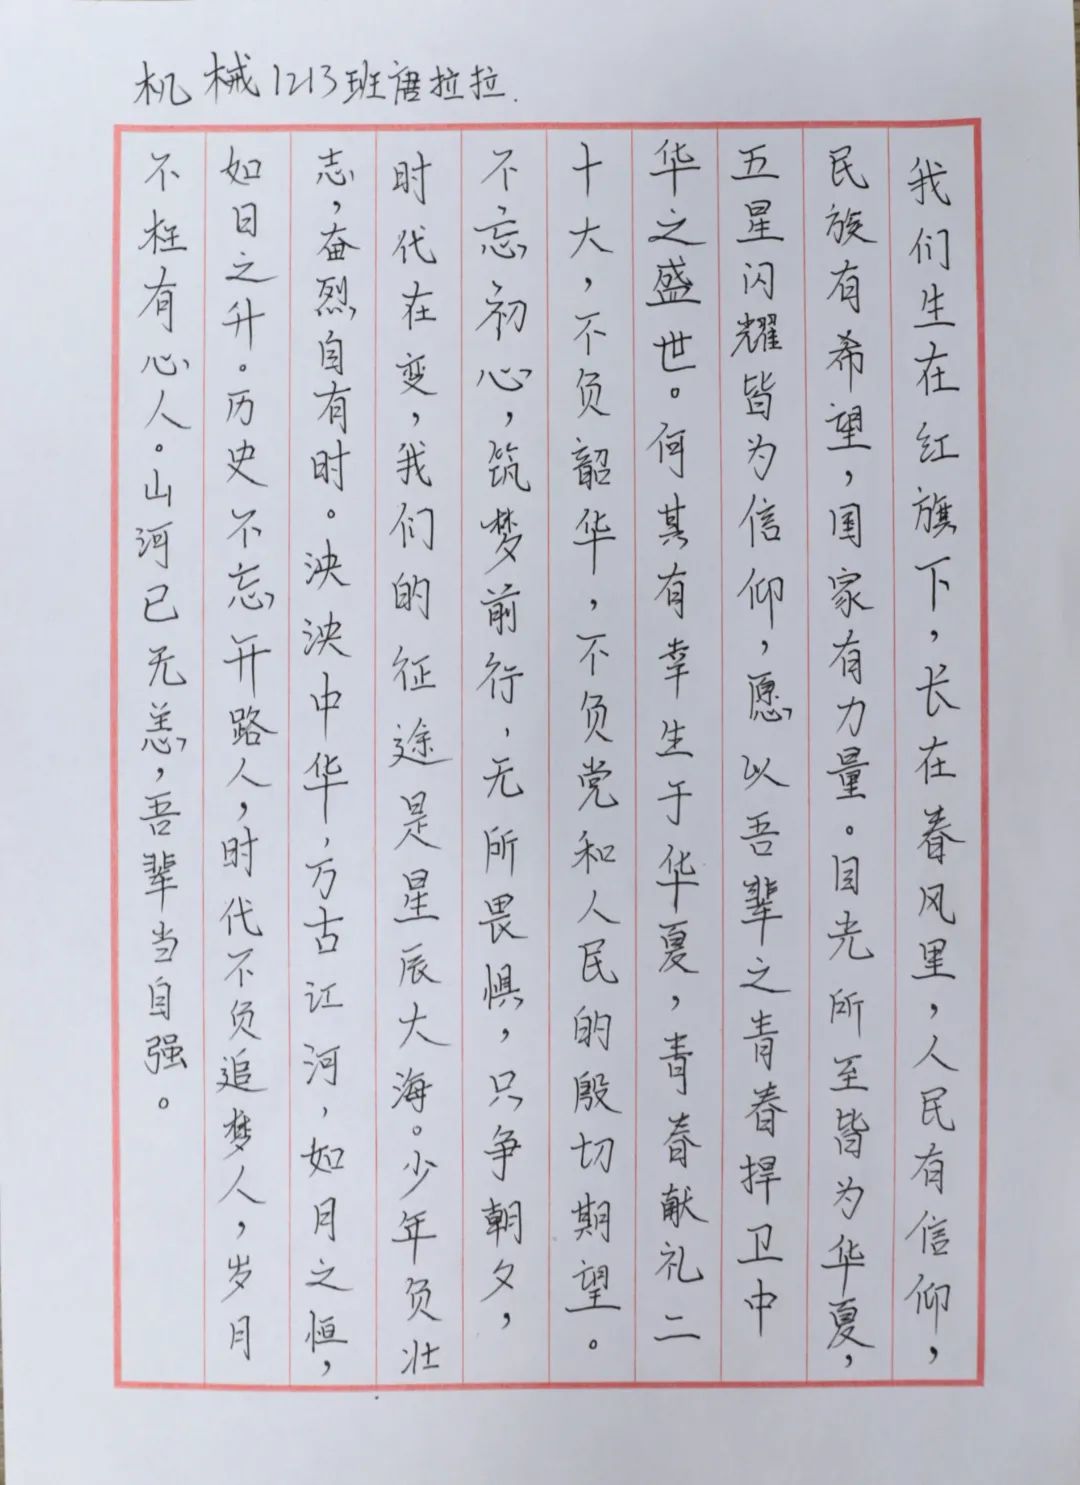 机械1213班唐拉拉.
我们生在红旗下，长在春风里，人民有信仰，
民族有希望，国家有力量。目光所至皆为华夏，
五星闪耀皆为信仰，愿以吾辈之青春捍卫中
华之盛世。何其有幸生于华夏，青春献礼二
十大，不负韶华，不负党和人民的殷切期望。
不忘初心，筑梦前行，无所畏惧，只争朝夕，
时代在变，我们的征途是星辰大海。少年负壮
志，奋烈自有时。泱泱中华，万古江河，如月之恒，
如日之升。历史不忘开路人，时代不负追梦人，岁月
不枉有心人。山河已无恙，吾辈当自强。